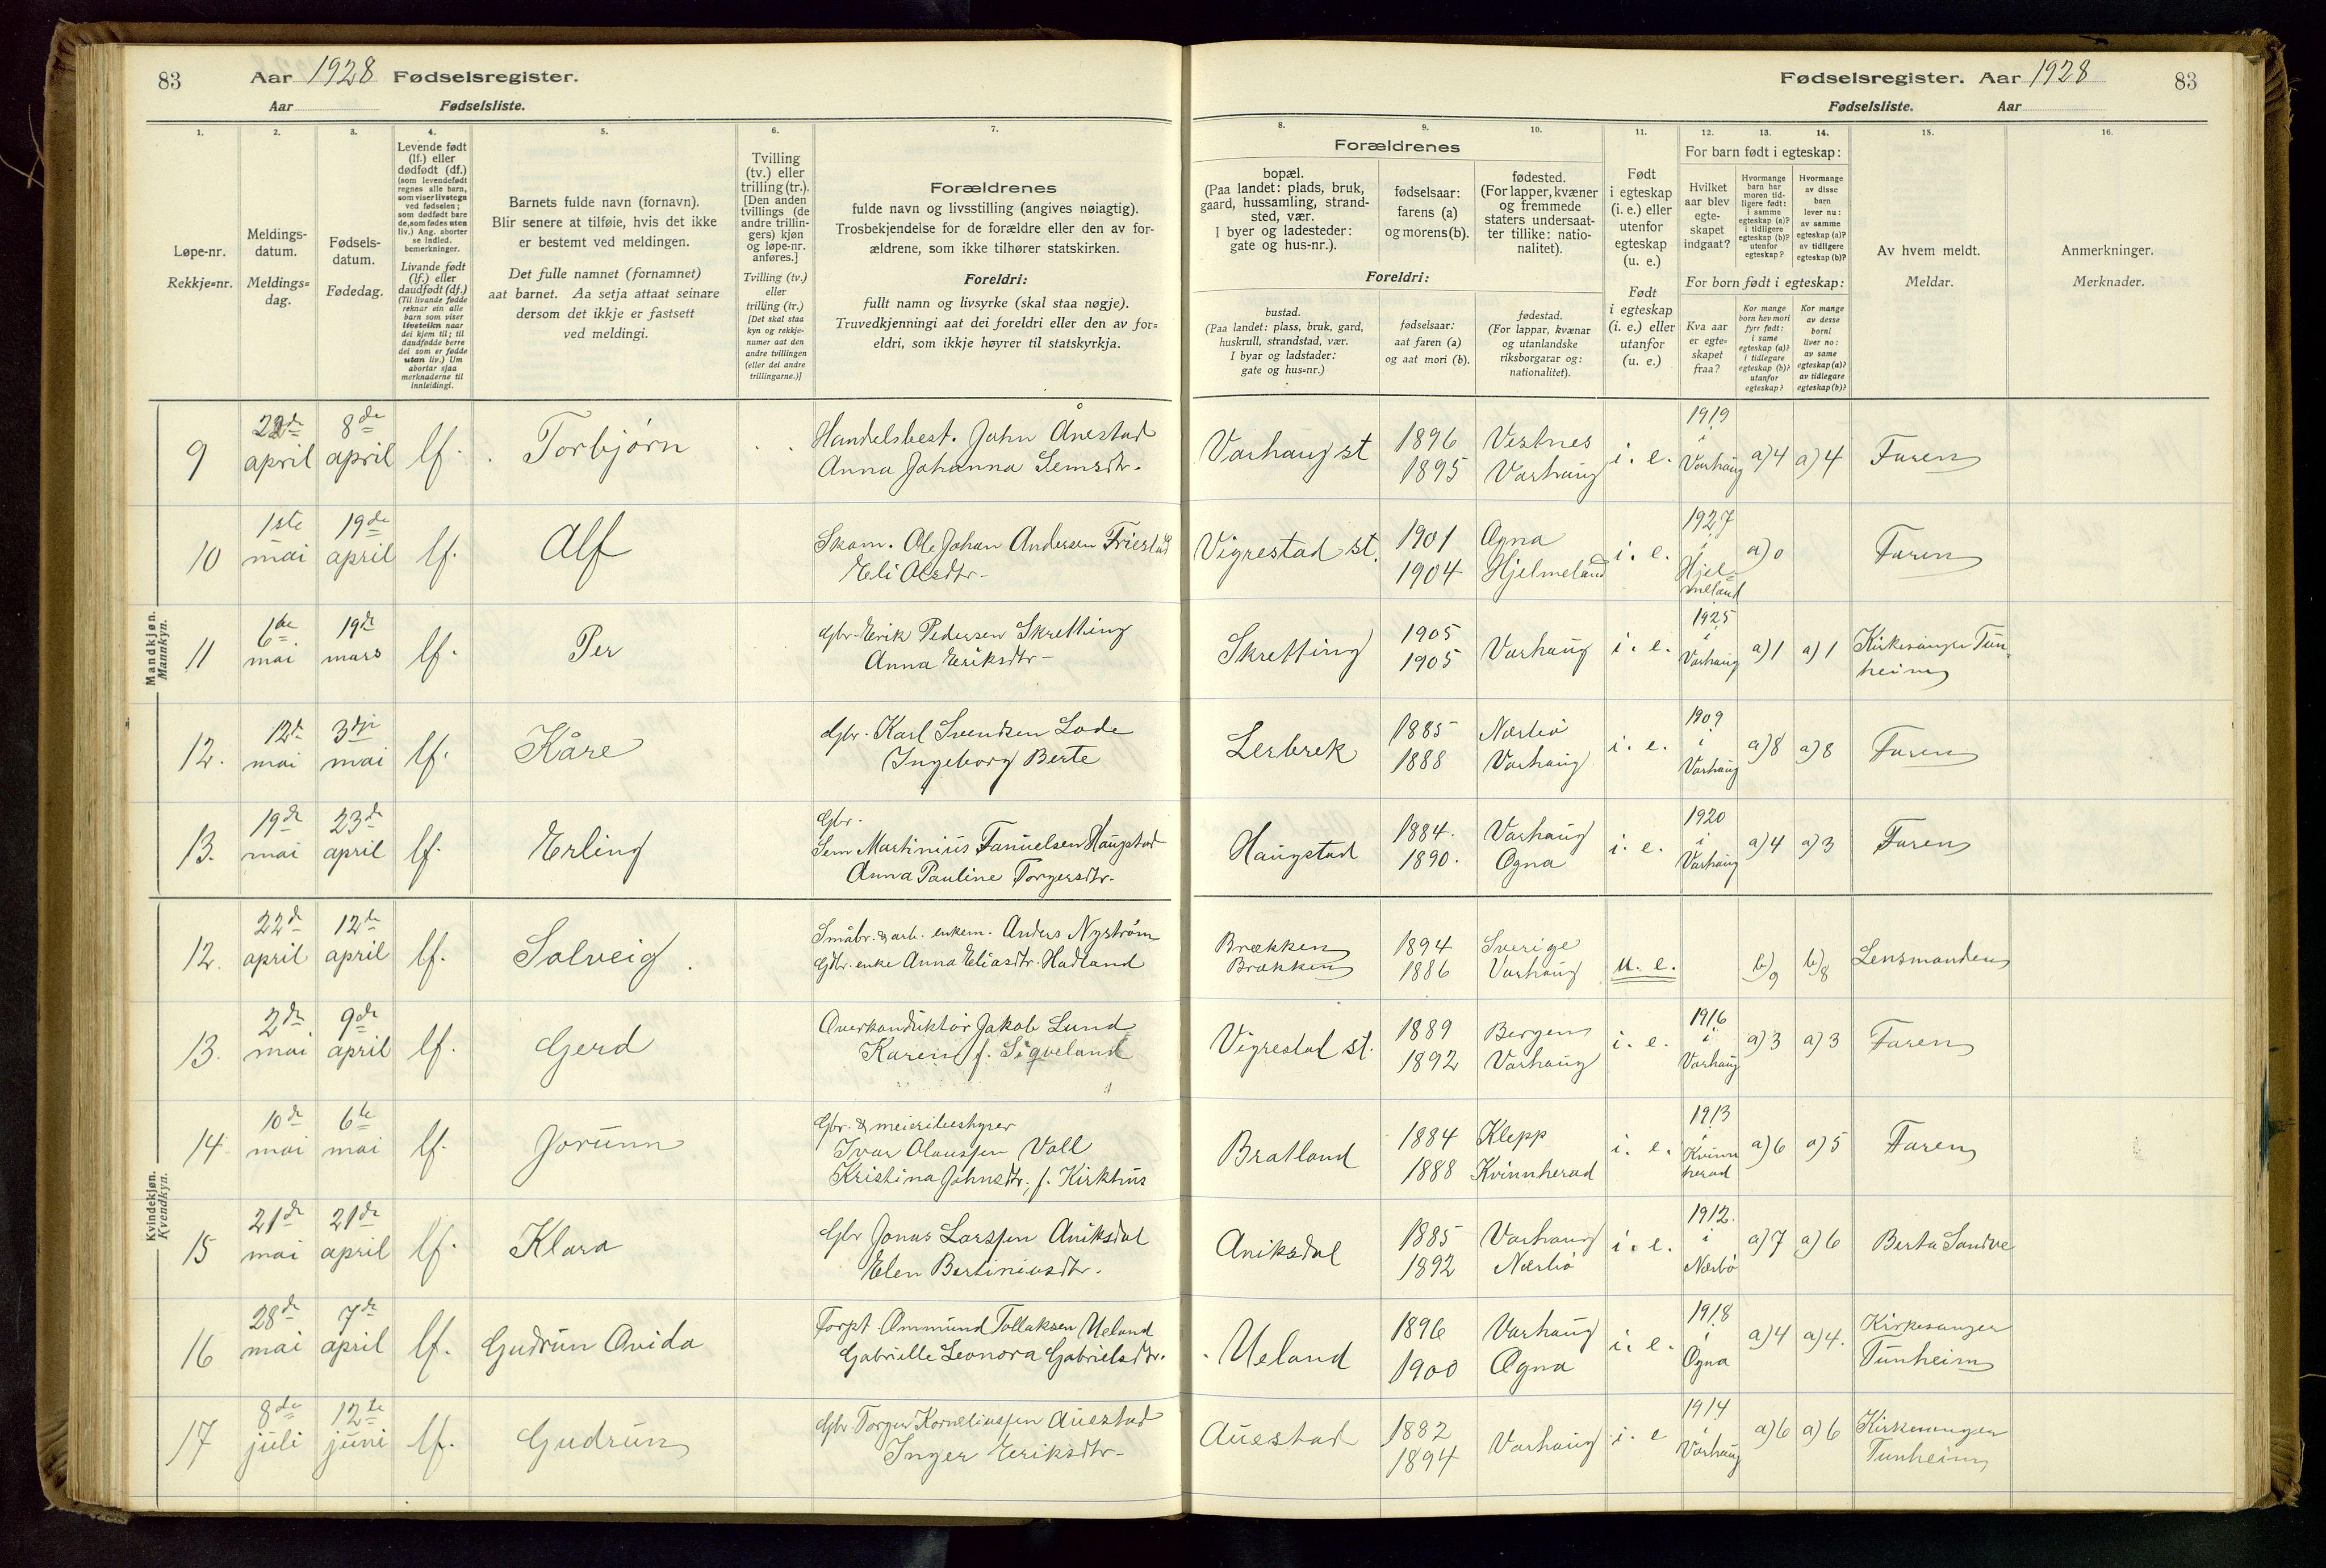 83 Aar 1928 Fødselsregister.
Aar Fødselsliste.
Fødselsregister. Aar 1928 83
Fødselsliste. Aar
1.
Løpe-nr.
Rekkje=nr.
2.
Meldings-
datum.
Meldings=
dag.
3.
Fødsels-
datum.
Fødedag.
4.
Levende født
(lf.) eller
dødfødt (df.)
(som levendefødt
regnes alle barn,
som viser livstegn
ved fødselen;
som dødfødt bare
de, som fødes uten
liv.) Ang. aborter
se indled.
bemerkninger.
Livande født
(lf.) eller
daudfødt (df.)
(Til livande fødde
reknar ein alle
barn som viser
livsteikn naar
dei kjem til; til
daudfødde berre
dei som er fødde
utan liv.) Um
abortar sjaa
merknaderne til
innleidingi.
5.
Barnets fulde navn (fornavn).
Blir senere at tilføie, hvis det ikke
er bestemt ved meldingen.
Det fulle namnet (fornamnet)
aat barnet. Aa setja attaat seinare
dersom det ikkje er fastsett
ved meldingi.
6.
Tvilling
(tv.) eller
trilling (tr.).
[Den anden
tvillings (de
andre trillin-
gers) kjøn
og løpe-nr.
anføres.]
Tvilling (tv.)
eller
trilling (tr.)
[Det skal staa
kyn og rekkje-
numer aat den
andre tvillingen
(eller dei andre
trillingarne.)]
7.
Forældrenes
fulde navn og livsstilling (angives nøiagtig).
Trosbekjendelse for de forældre eller den av for-
ældrene, som ikke tilhører statskirken.
Foreldri:
fullt namn og livsyrke (skal staa nøgje).
Truvedkjenningi aat dei foreldri eller den av for=
eldri, som ikkje høyrer til statskyrkja.
Forældrenes
8.
bopæl.
(Paa landet: plads, bruk,
gaard, hussamling, strand-
sted, vær.
I byer og ladesteder:
gate og hus-nr.).
9.
fødselsaar:
farens (a)
og morens (b).
10.
fødested.
(For lapper, kvæner
og fremmede
staters undersaat-
ter tillike: natio-
nalitet).
Foreldri:
bustad.
(Paa landet: plass, bruk, gard,
huskrull, strandstad, vær.
I byar og ladstader:
gate og hus=nr.)
fødselsaar:
aat faren (a)
og aat mori (b).
fødestad.
(For lappar, kvænar
og utanlandske
riksborgarar og:
nationalitet).
11.
Født
i egteskap
(i. e.) eller
utenfor
egteskap
(u. e.)
Født
i egteskap
(i. e.) eller
utanfor
(u. e.)
For barn født i egteskap:
12.
Hvilket
aar blev
egte-
skapet
indgaat?
13.
Hvormange
barn har
moren tid-
ligere født:
i samme
egteskap (a)?
i tidligere
egteskap (b)?
utenfor
egteskap?
14.
Hvormange
av disse
barn
lever nu:
av samme
egteskap (a)?
av tidligere
egteskap (b)?
For born født i egteskap:
Kva aar
er egte=
skapet
fraa?
Kor mange
born hev mori
fyrr født:
i same
egteskap (a)?
i tidlegare
egteskap (b)?
utanfor
egteskap?
Kor mange
av desse
borni
liver no:
av same
egteskap (a)?
av tidlegare
egteskap (b)?
15.
Av hvem meldt.
Meldar.
16.
Anmerkninger.
Merknader.
Mandkjøn.
Mannkyn.
9 22de april 8de april lf. Torbjørn Handelsbest. John Ånestad
Anna Johanna Semsdtr. Varhaug st 1896 1895 Vestnes Varhaug i. e. 1919 i Varhaug a) 4 a) 4 Faren
10 1ste mai 19de april lf. Alf Skom. Ole Johan Andersen Friestad
Eli Olsdtr- Vigrestad st. 1901 1904 Ogna Hjelmeland i. e. 1927 i Hjel-meland a) 0 Faren
11 6te mai 19de mars lf. Per Gbr. Erik Pedersen Skretting
Anna Eriksdtr- Skretting 1905 1905 Varhaug i. e. 1925 i Varhaug a) 1 a) 1 Kirkesanger Tunheim
12. 12te mai 3dje mai lf. Kåre Gbr. Karl Svendsen Lode
Ingeborg Berte Lerbrek 1885 1888 Nærbø Varhaug i. e. 1909 i Varhaug a) 8 a) 8 Faren
13. 19de mai 23de april lf. Erling Gbr.
Sem Martinius Fanuelsen Haugstad
Anna Pauline Torgersdtr. Haugstad 1884. 1890. Varhaug Ogna i. e. 1920 i Varhaug a) 4 a) 3 Faren
Kvindekjøn.
Kvendkyn.
12. 22de april 12te april lf. Solveig Småbr. & arb. enkem. Anders Nystrøm
Gbr. enke Anna Eliasdtr. Hadland Brækken Brækken 1894 1886 Sverige Varhaug u. e. b) 9 b) 8 Lensmanden
13. 2den mai 9de april lf. Gerd Overkonduktør Jakob Lund
Karen f. Sigveland Vigrestad st. 1889 1892 Bergen Varhaug i. e. 1916 i Varhaug a) 3 a) 3 Faren
14 10de mai 6te mai lf. Jorunn Gbr. & meieribestyrer
Ivar Olaussen Voll
Kristina Johnsdtr, f. Kirkhus Bratland 1884 1888 Klepp Kvinnherad i. e. 1913 i Kvinnherad a) 6 a) 5 Faren
15 21de mai 21de april lf. Klara Gbr Jonas Larssen Aniksdal
Elen Bertiniusdtr. Aniksdal 1885 1892 Varhaug Nærbø i. e. 1912. i Nærbø a) 7 a) 6 Berta Sandve
16 28de mai 7de april lf. Gudrun Ovida Forpt. Ommund Tollaksen Ueland
Gabrielle Leonora Gabrielsdtr. Ueland 1896 1900 Varhaug Ogna i. e. 1918 i Ogna a) 4 a) 4. Kirkesanger Tunheim
17 8de juli 12te juni lf. Gudrun Gbr Torger Korneliussen Auestad
Inger Eriksdtr- Auestad 1882 1894 Varhaug i. e 1914 i Varhaug a) 6 a) 6 Kirkesanger Tunheim